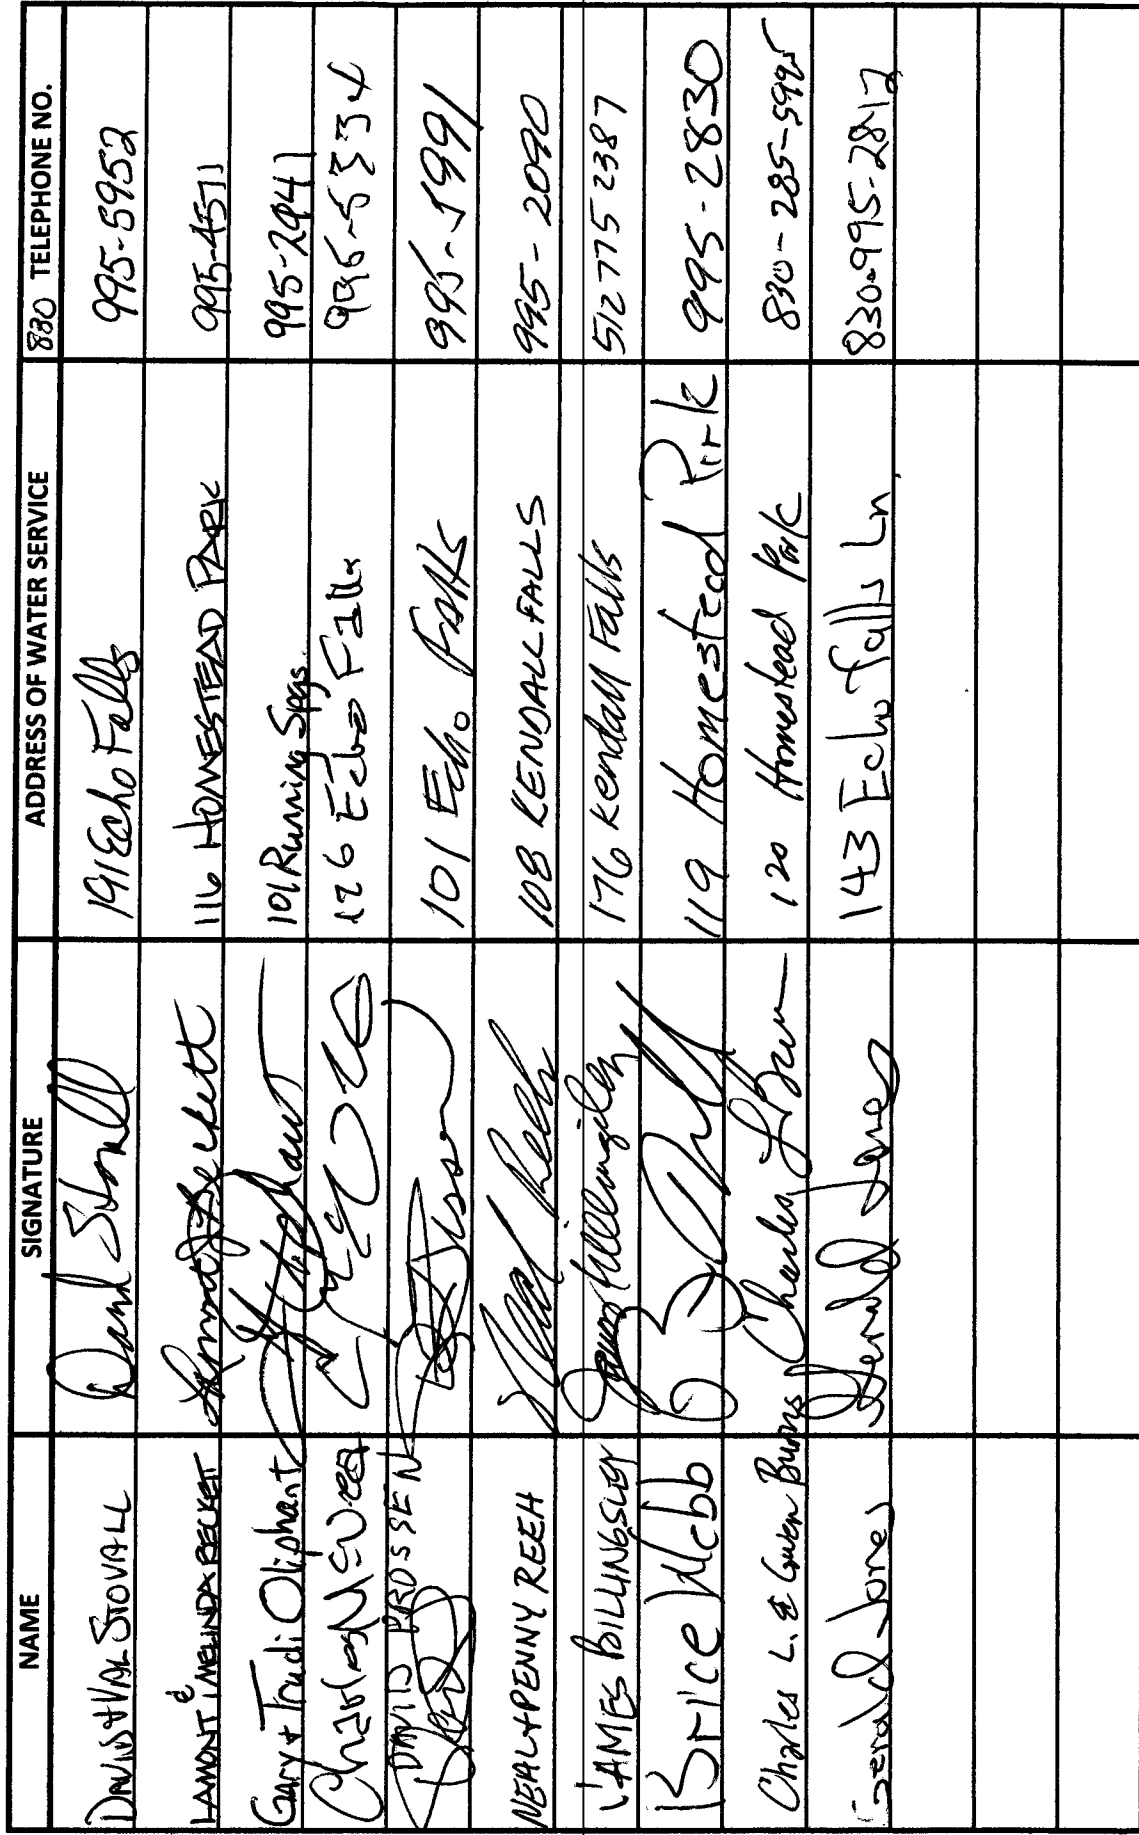 NAME SIGNATURE ADDRESS OF WATER SERVICE 830 TELEPHONE NO.
DAVID & VAL STOVALL David Stovall 191 Echo Falls 995-5952
LAMONT & MELINDA BECKETT Lamont Beckett 116 HOMESTEAD PARK 995-4571
Gary + Trudi Oliphant 101 Running Spgs. 995-2441
Charles 126 Echo Falls 995-5334
DAVID PROSSEN 101 Echo Falls 995-1991
NEAL + PENNY REEH Neal Reeh 108 KENDALL FALLS 995-2090
JAMES BILLINGSLEY James Billingsley 176 Kendall Falls 512 775 2387
Brice Webb 119 Homestead Park 995-2830
Charles L. & Gwen Burns Charles L Burns 120 Homestead Park 830-285-5995
Gerald Jones Gerald Jones 143 Echo Falls Ln. 830-995-2817